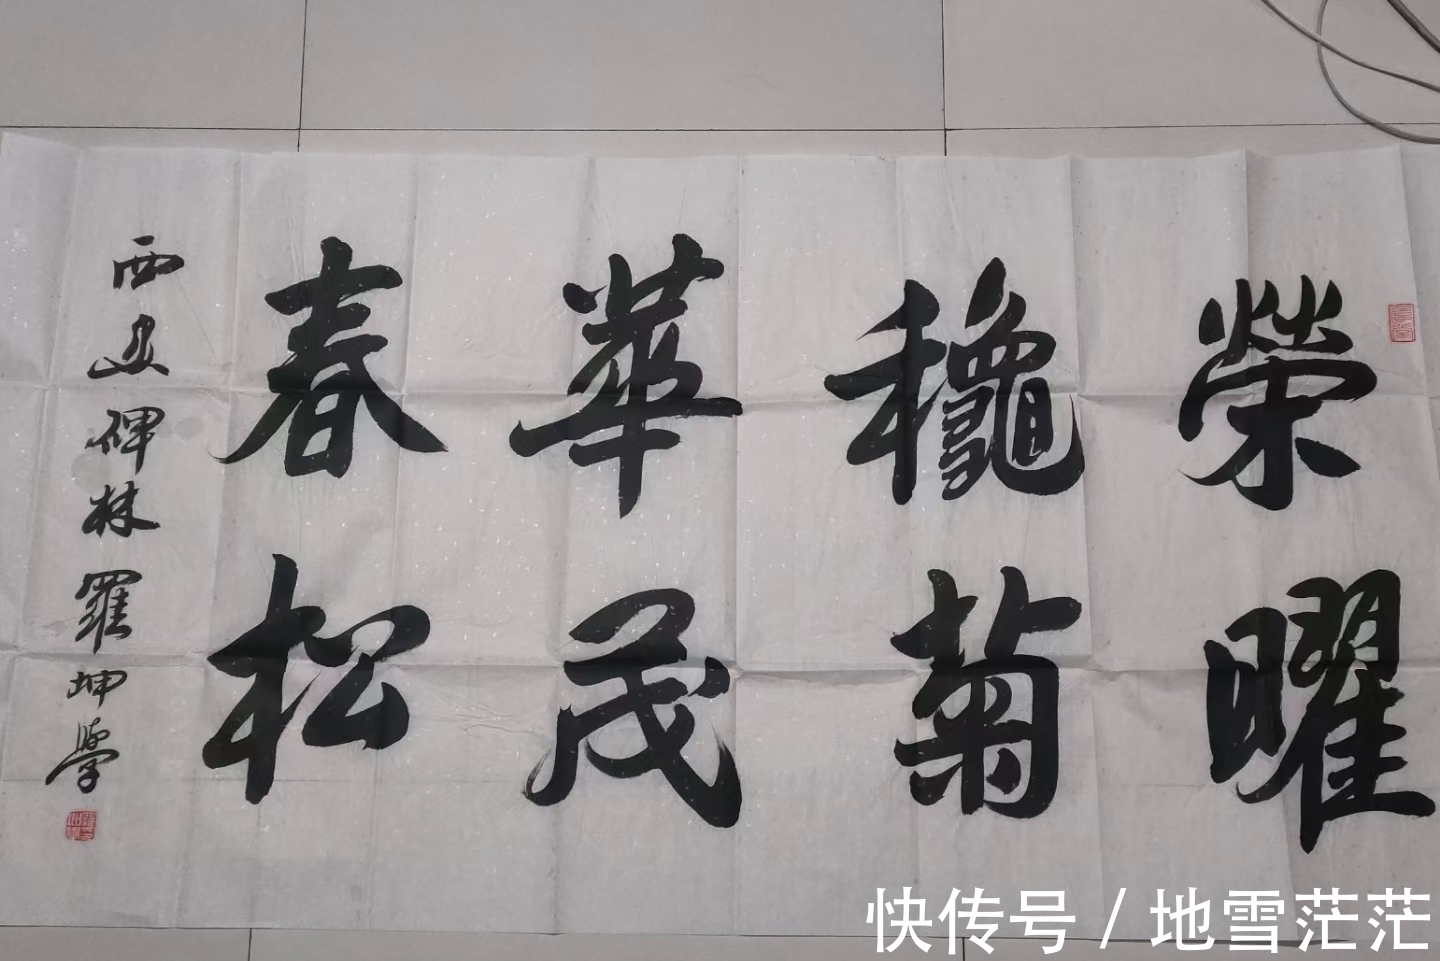 榮曜
龝菊
華茂
春松
西安碑林羅坤學
快传号 / 地雪茫茫